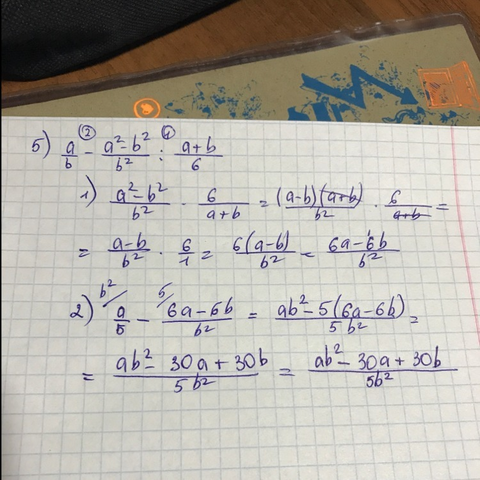 5) a/b - (a²-b²)/b² : (a+b)/6
② ①
1) (a²-b²)/b² · 6/(a+b) = (a-b)(a+b)/b² · 6/(a+b) =
= (a-b)/b² · 6/1 = 6(a-b)/b² = (6a-6b)/b²
2) b² a/5 - 5 (6a-6b)/b² = (ab²-5(6a-6b))/5b² =
= (ab²-30a+30b)/5b² = (ab²-30a+30b)/5b²